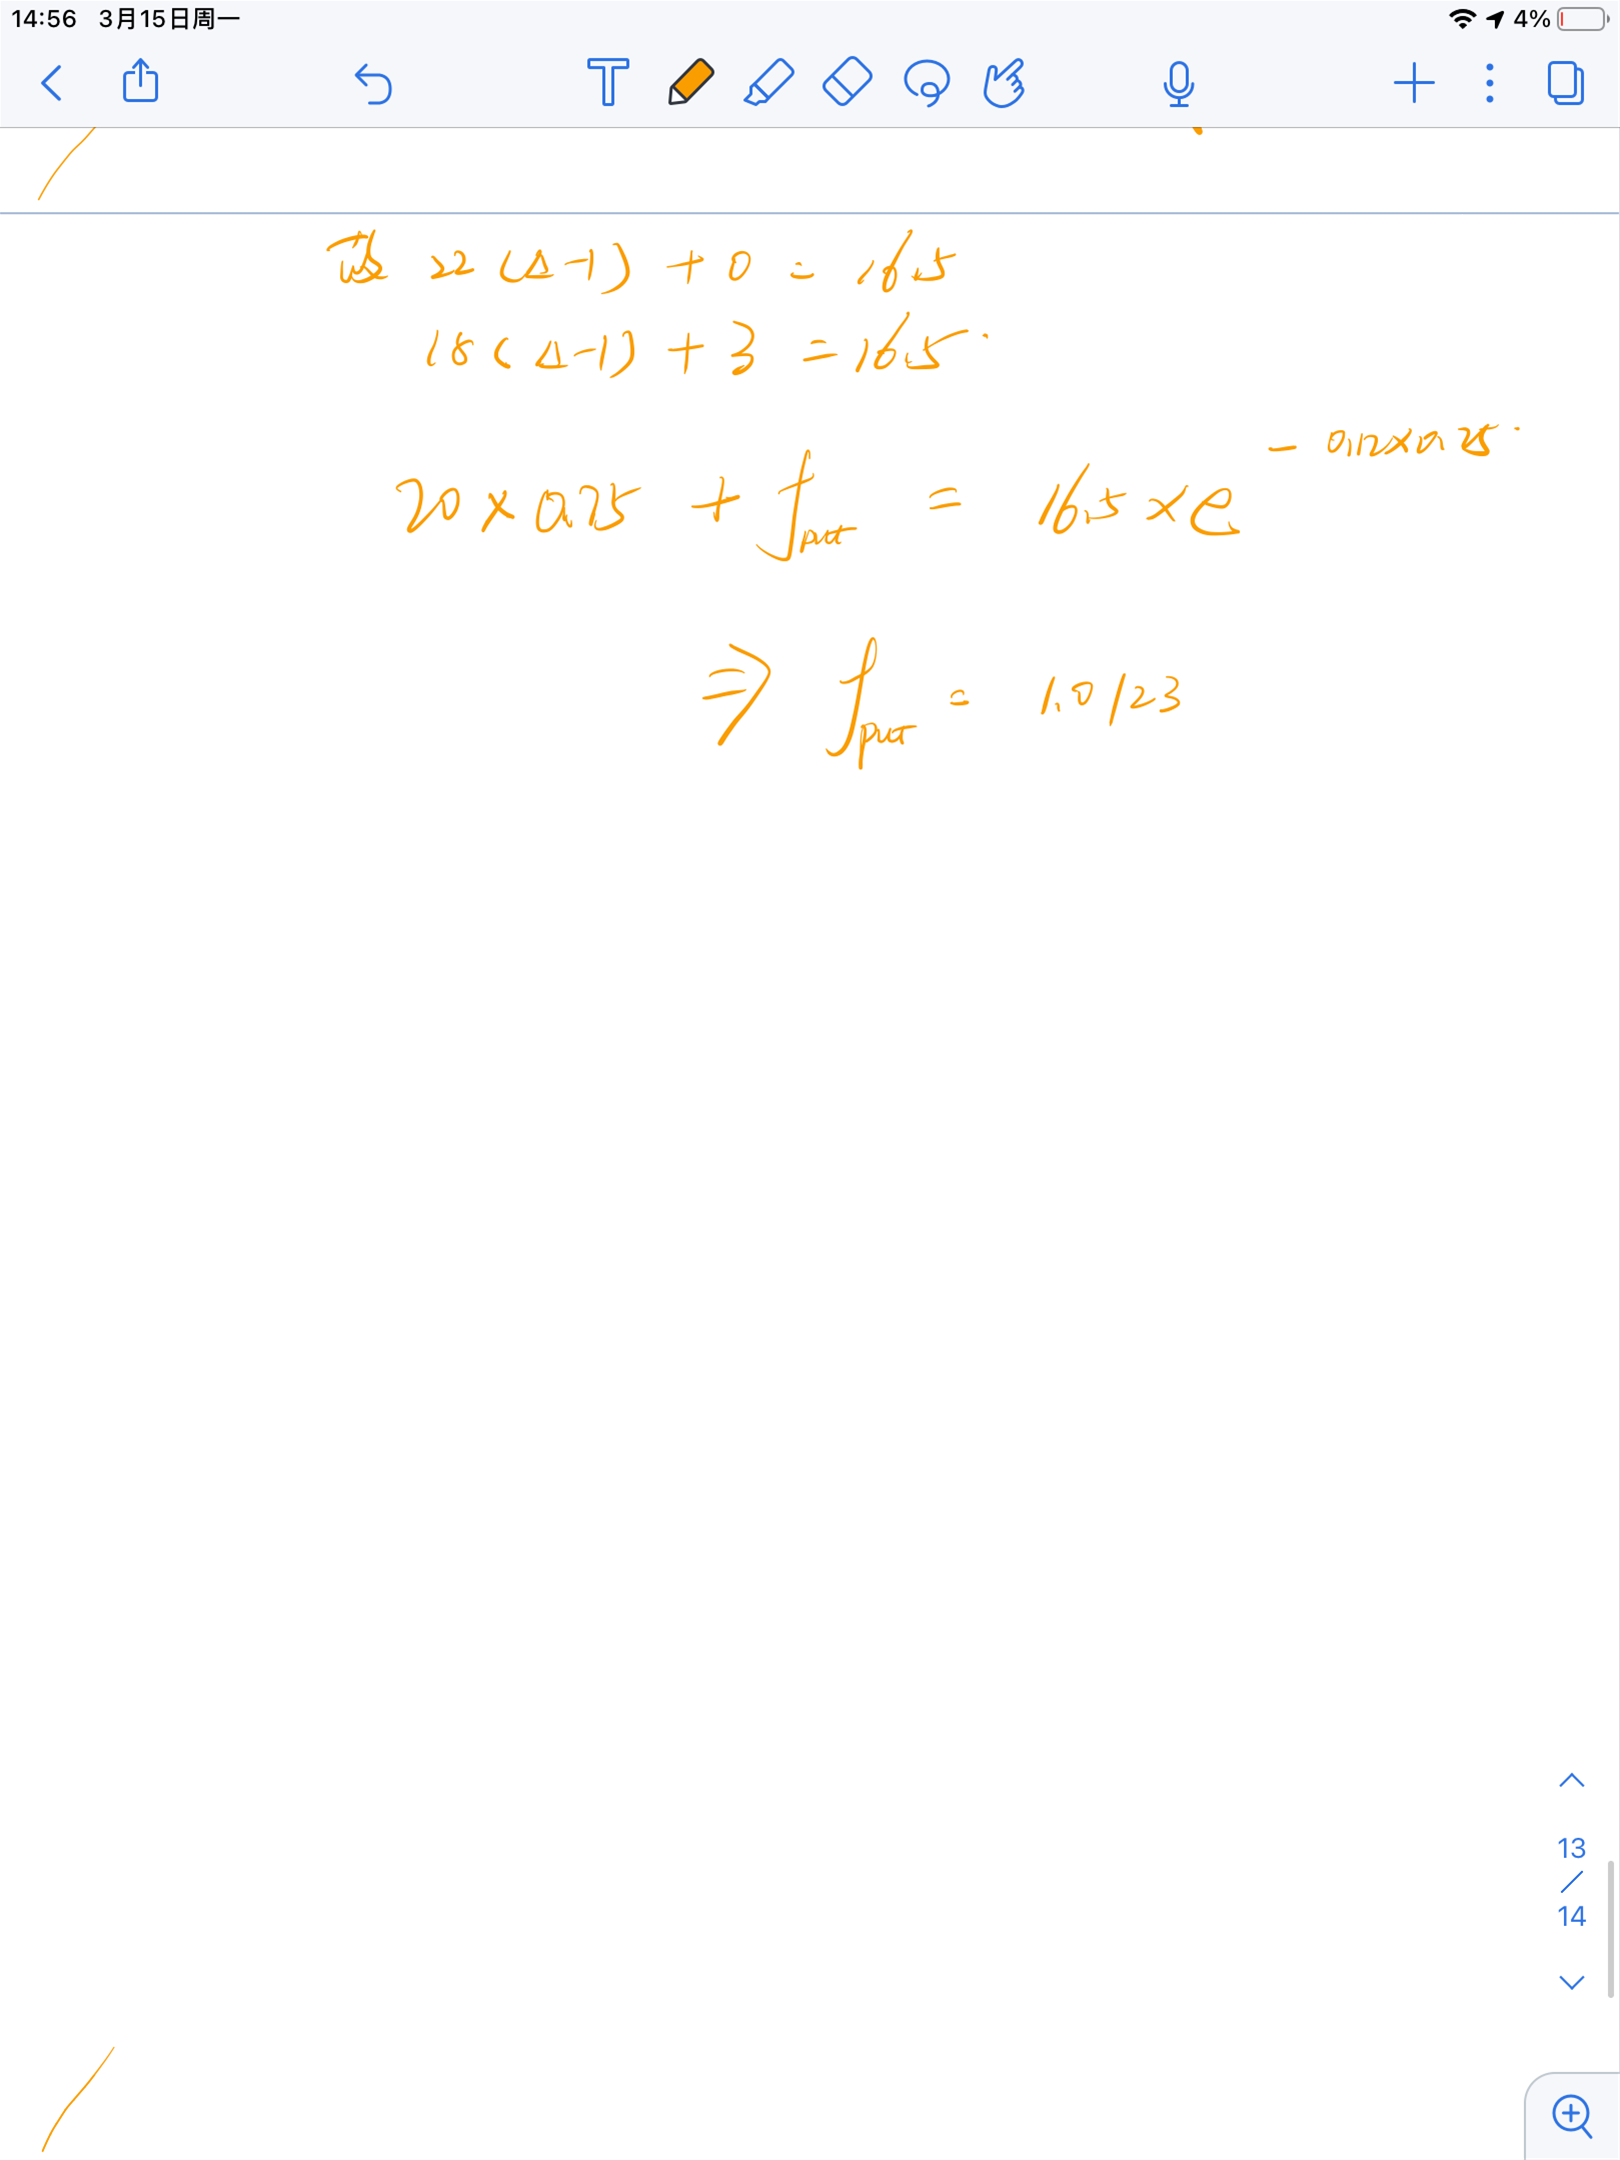 14:56 3月15日周一
4%
T
故 22 (Δ-1) + 0 = 16.5
18 (Δ-1) + 3 = 16.5
20 × 0.75 + f_put = 16.5 × e^{-0.12×0.25}
⇒ f_put = 1.0123
13
/
14